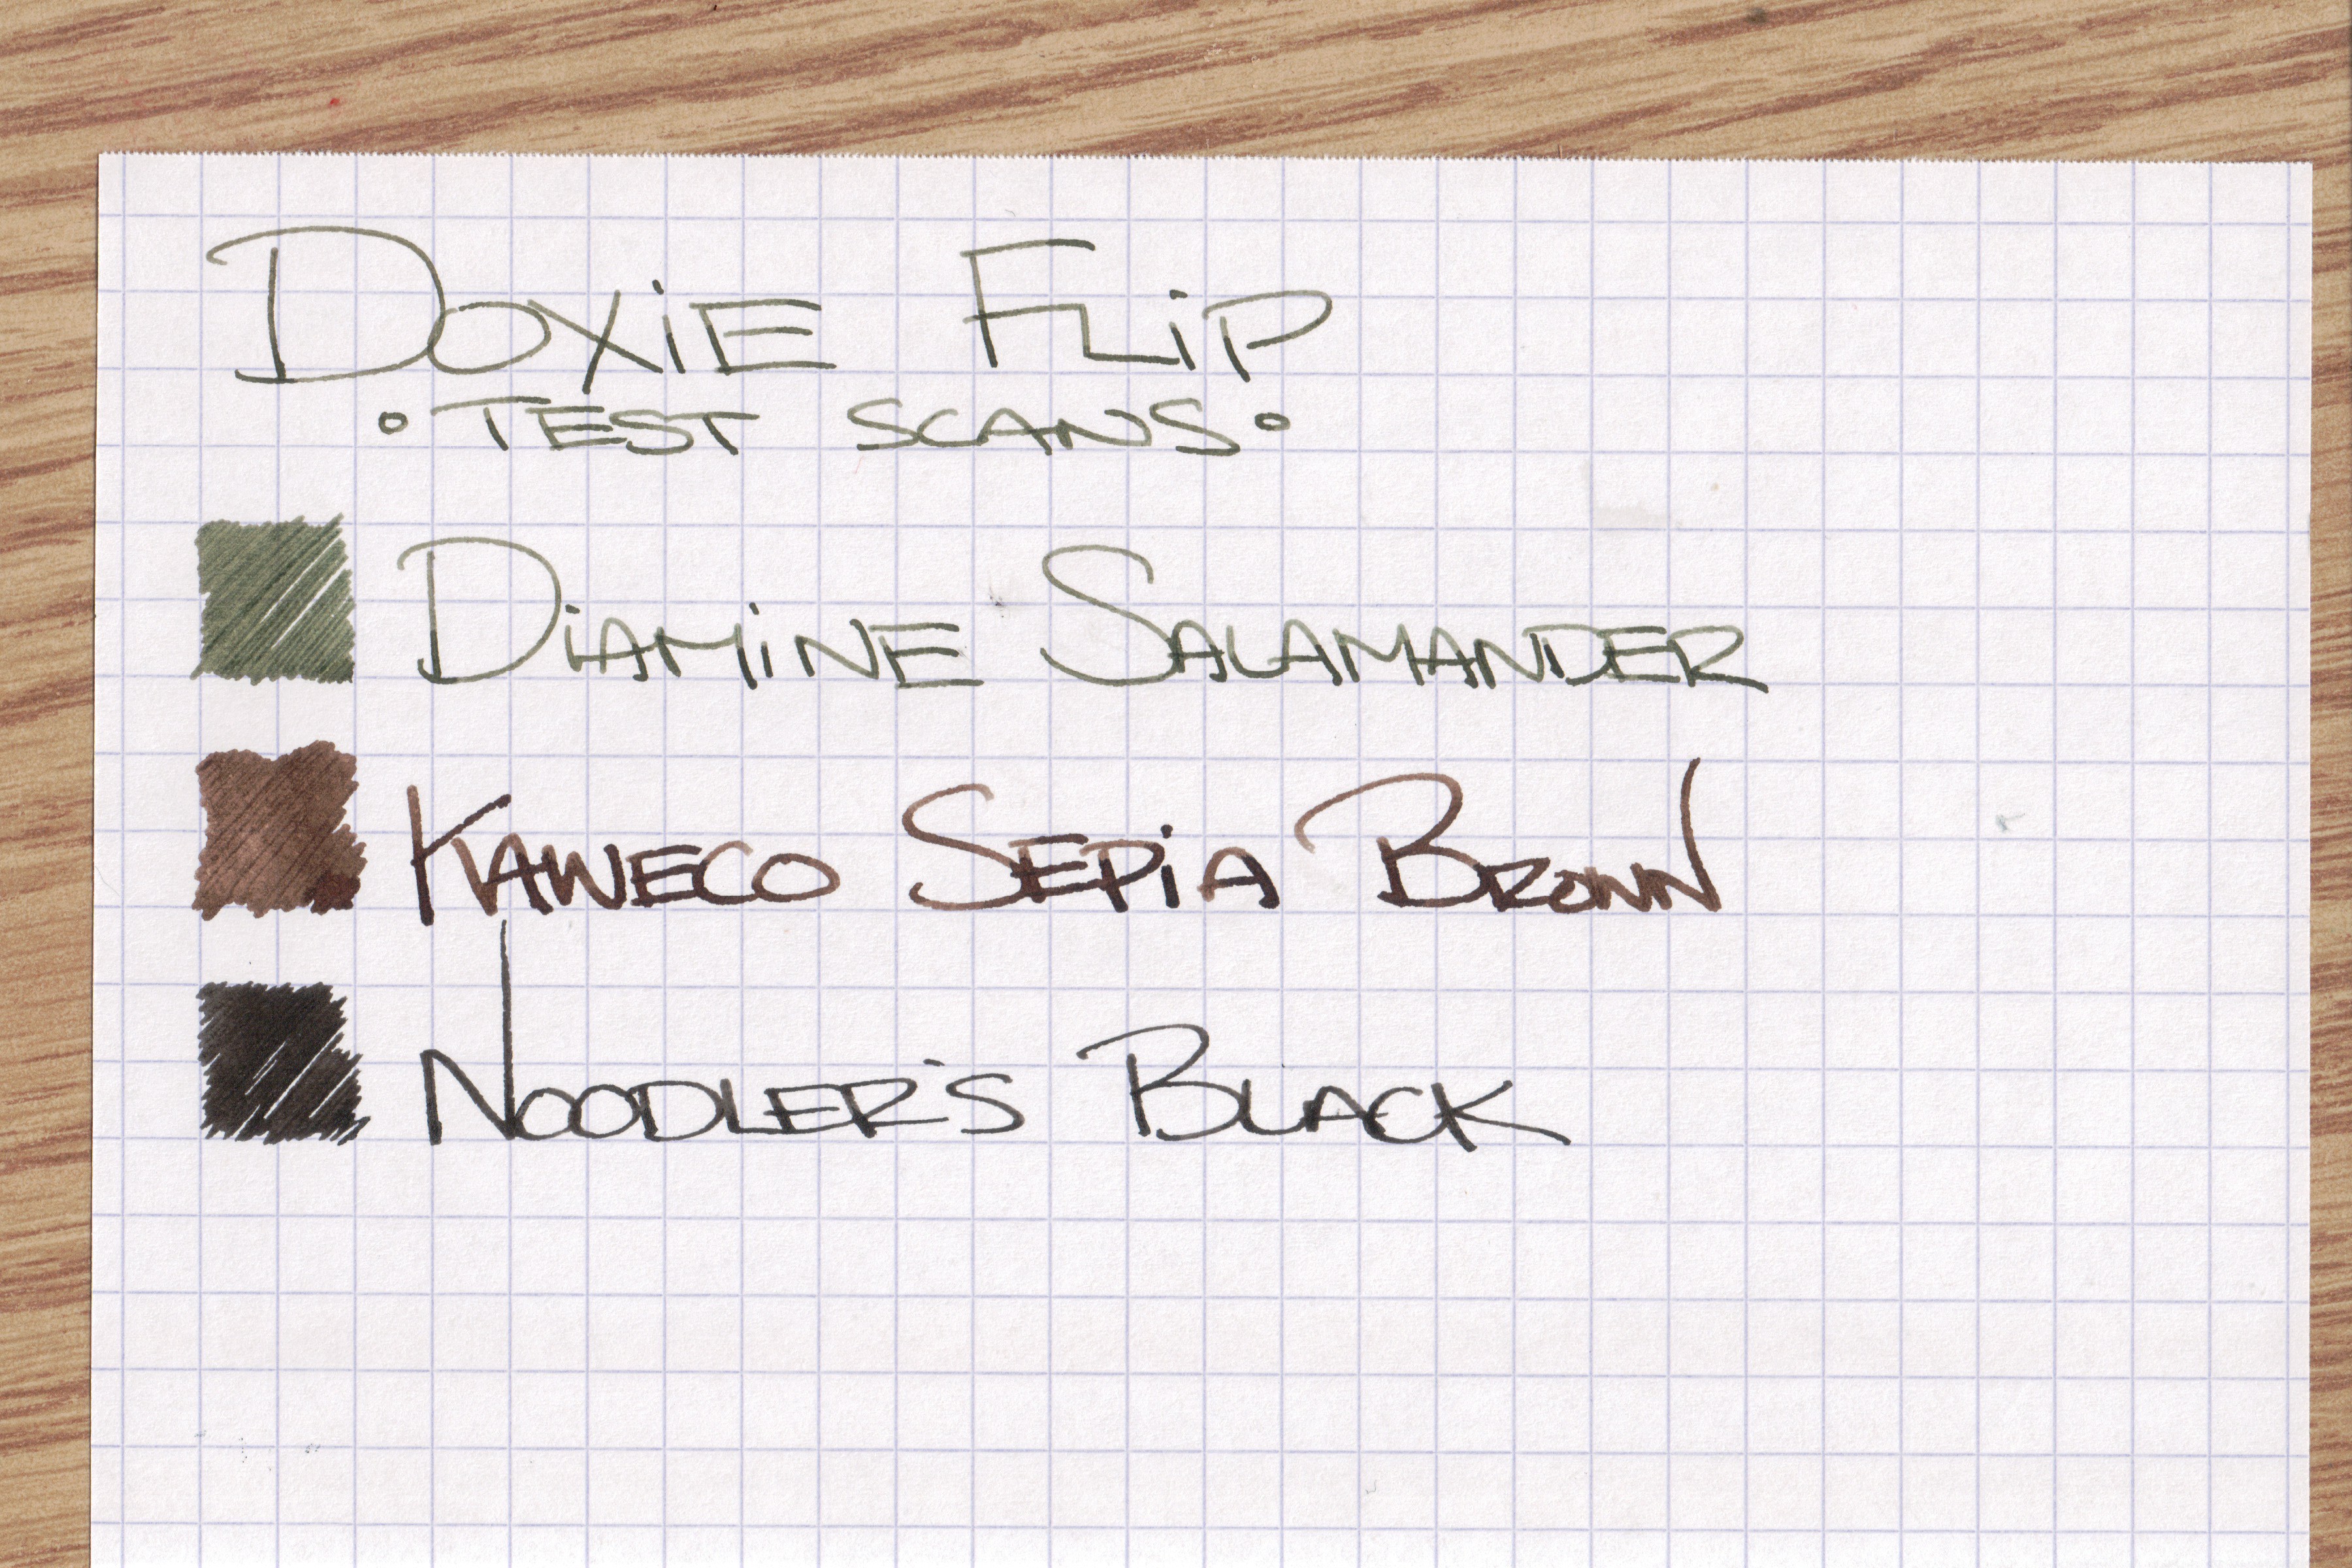 DOXiE FLiP
• TEST SCANS •
DiAMiNE SALAMANDER
KAWECO SEPiA BROWN
NOODLER'S BLACK